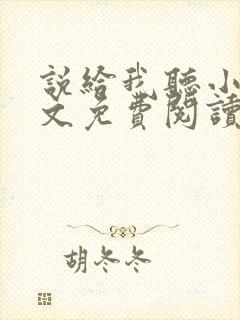 説給我聽小
文免費閱讀
胡冬冬